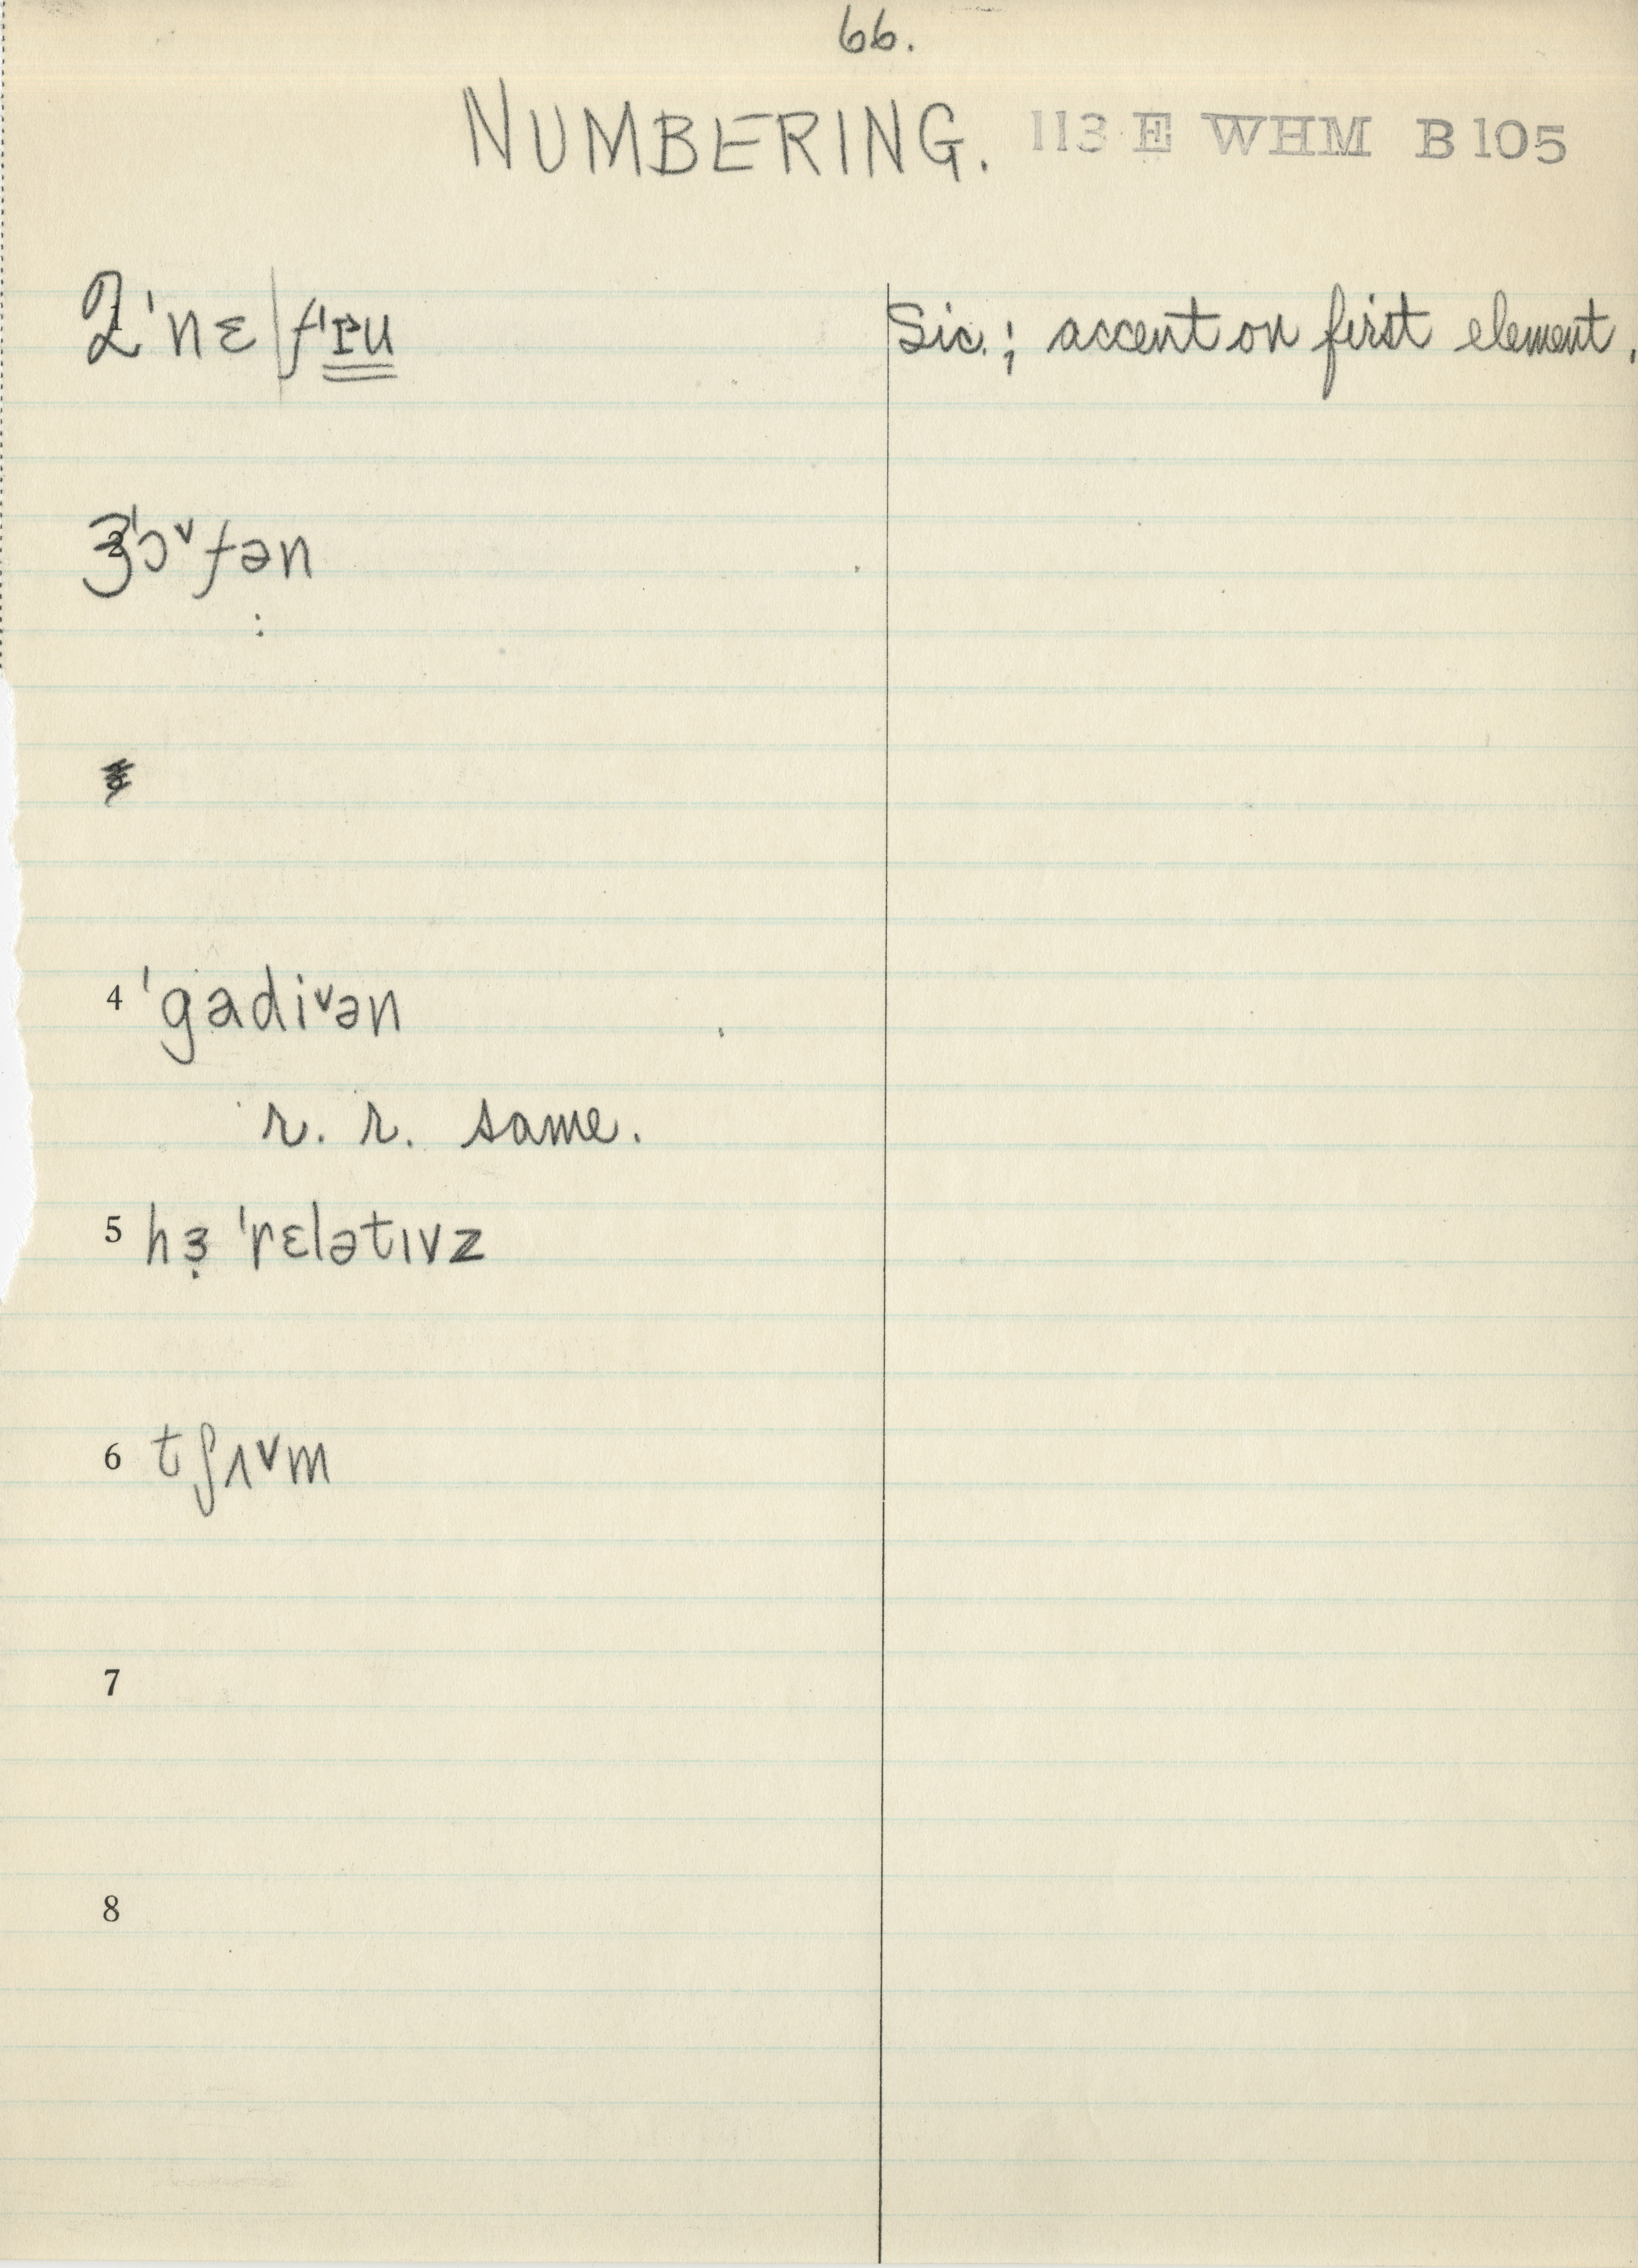 66.
NUMBERING. 113 E WHM B 105
2 ˈnɛ|fˈɪu Sic.; accent on first element.
3 ˈɔᵛfən
4 ˈgadiᵛən
r. r. same.
5 hɜ̣ ˈrɛlətɪvz
6 tʃʌᵛm
7
8